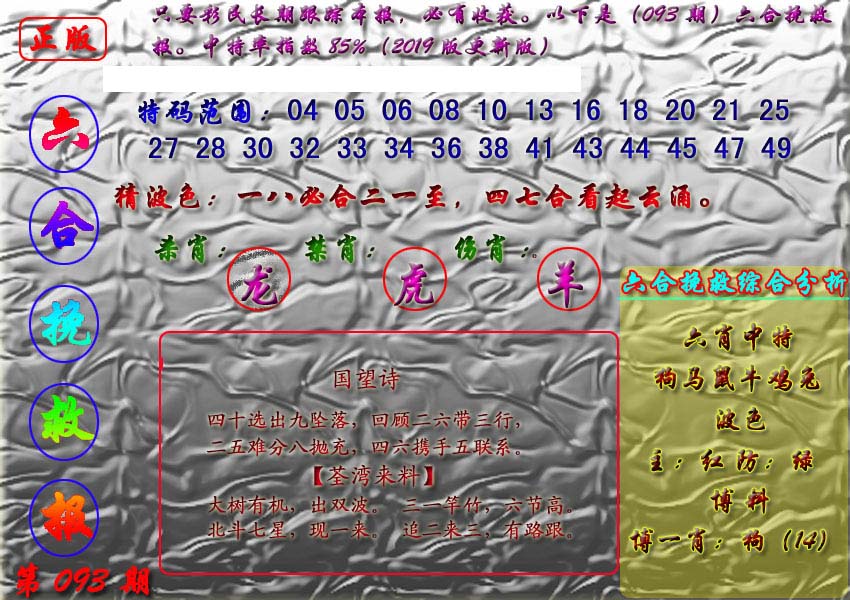 正版
只要彩民长期跟踪本报，必有收获。以下是（093期）六合挽救
报。中特率指数85%（2019版更新版）
六合挽救报
特码范围：04 05 06 08 10 13 16 18 20 21 25
27 28 30 32 33 34 36 38 41 43 44 45 47 49
猜波色：一八必合二一至，四七合看起云涌。
杀肖：龙 禁肖：虎 伤肖：羊
国望诗
四十选出九坠落，回顾二六带三行，
二五难分八抛充，四六携手五联系。
【荃湾来料】
大树有机，出双波。 三一竿竹，六节高。
北斗七星，现一来。 追二来三，有路跟。
六合挽救综合分析
六肖中特
狗马鼠牛鸡兔
波色
主：红防：绿
博料
博一肖：狗（14）
第093期